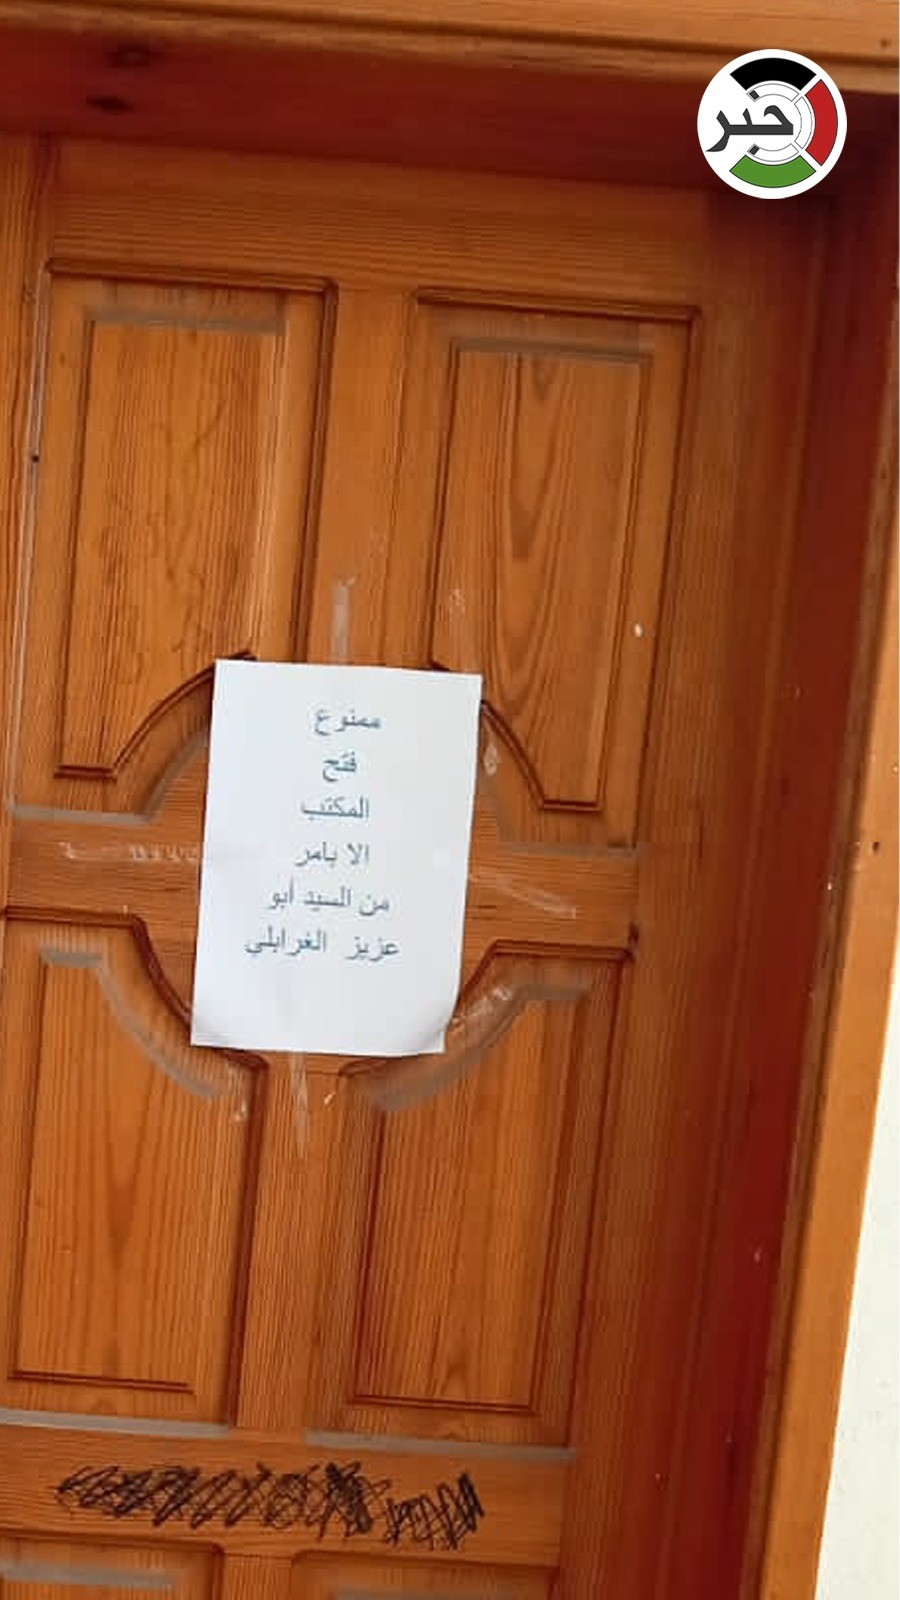 خبر
ممنوع
فتح
المكتب
الا بامر
من السيد أبو
عزيز الغرابلي